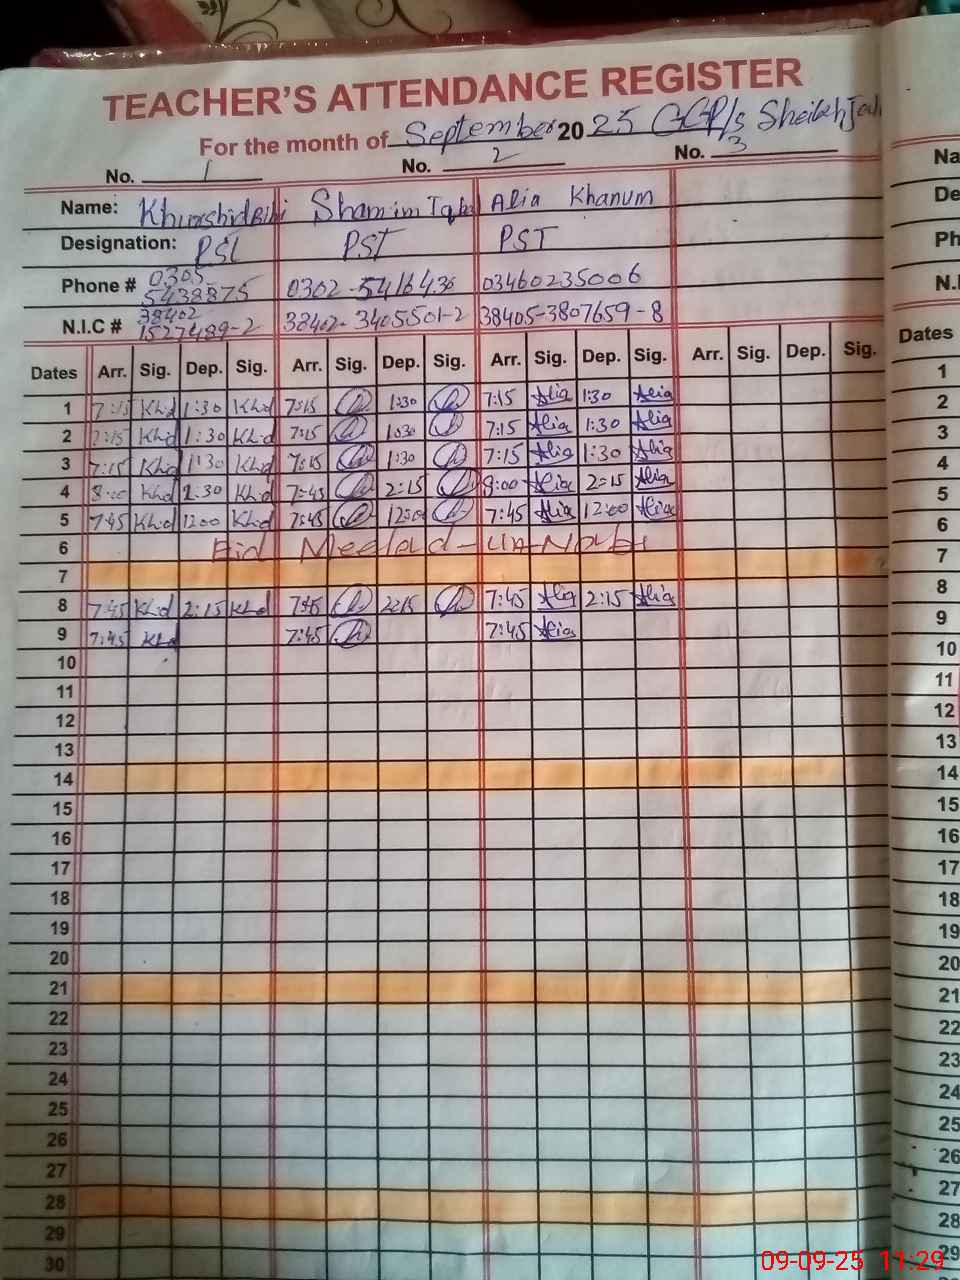 TEACHER'S ATTENDANCE REGISTER
For the month of September 20 25 GGP/s Sheikh
No. 1 No. 2 No. 3
Name: Khurshid Bibi Shamim Iqbal Alia Khanum
Designation: PST PST PST
Phone # 0305-5438875 0302-5416436 03460235006
N.I.C # 38402 1527489-2 38402-3405501-2 38405-3807659-8
Dates Arr. Sig. Dep. Sig. Arr. Sig. Dep. Sig. Arr. Sig. Dep. Sig. Arr. Sig. Dep. Sig.
1 7:15 Kh.d 1:30 Kh.d 7:15 1:30 7:15 Alia 1:30 Alia
2 7:15 Kh.d 1:30 Kh.d 7:15 1:30 7:15 Alia 1:30 Alia
3 7:15 Kh.d 1:30 Kh.d 7:15 1:30 7:15 Alia 1:30 Alia
4 8:00 Kh.d 2:30 Kh.d 7:45 2:15 8:00 Alia 2:15 Alia
5 7:45 Kh.d 12:00 Kh.d 7:45 12:00 7:45 Alia 12:00 Alia
6 Eid Meelad-un-Nabi
7
8 7:45 Kh.d 2:15 Kh.d 7:45 2:15 7:45 Alia 2:15 Alia
9 7:45 Kh.d 7:45 7:45 Alia
10
11
12
13
14
15
16
17
18
19
20
21
22
23
24
25
26
27
28
29
30
Na
De
Ph
N.I
Dates
1
2
3
4
5
6
7
8
9
10
11
12
13
14
15
16
17
18
19
20
21
22
23
24
25
26
27
28
29
09-09-25 11:29